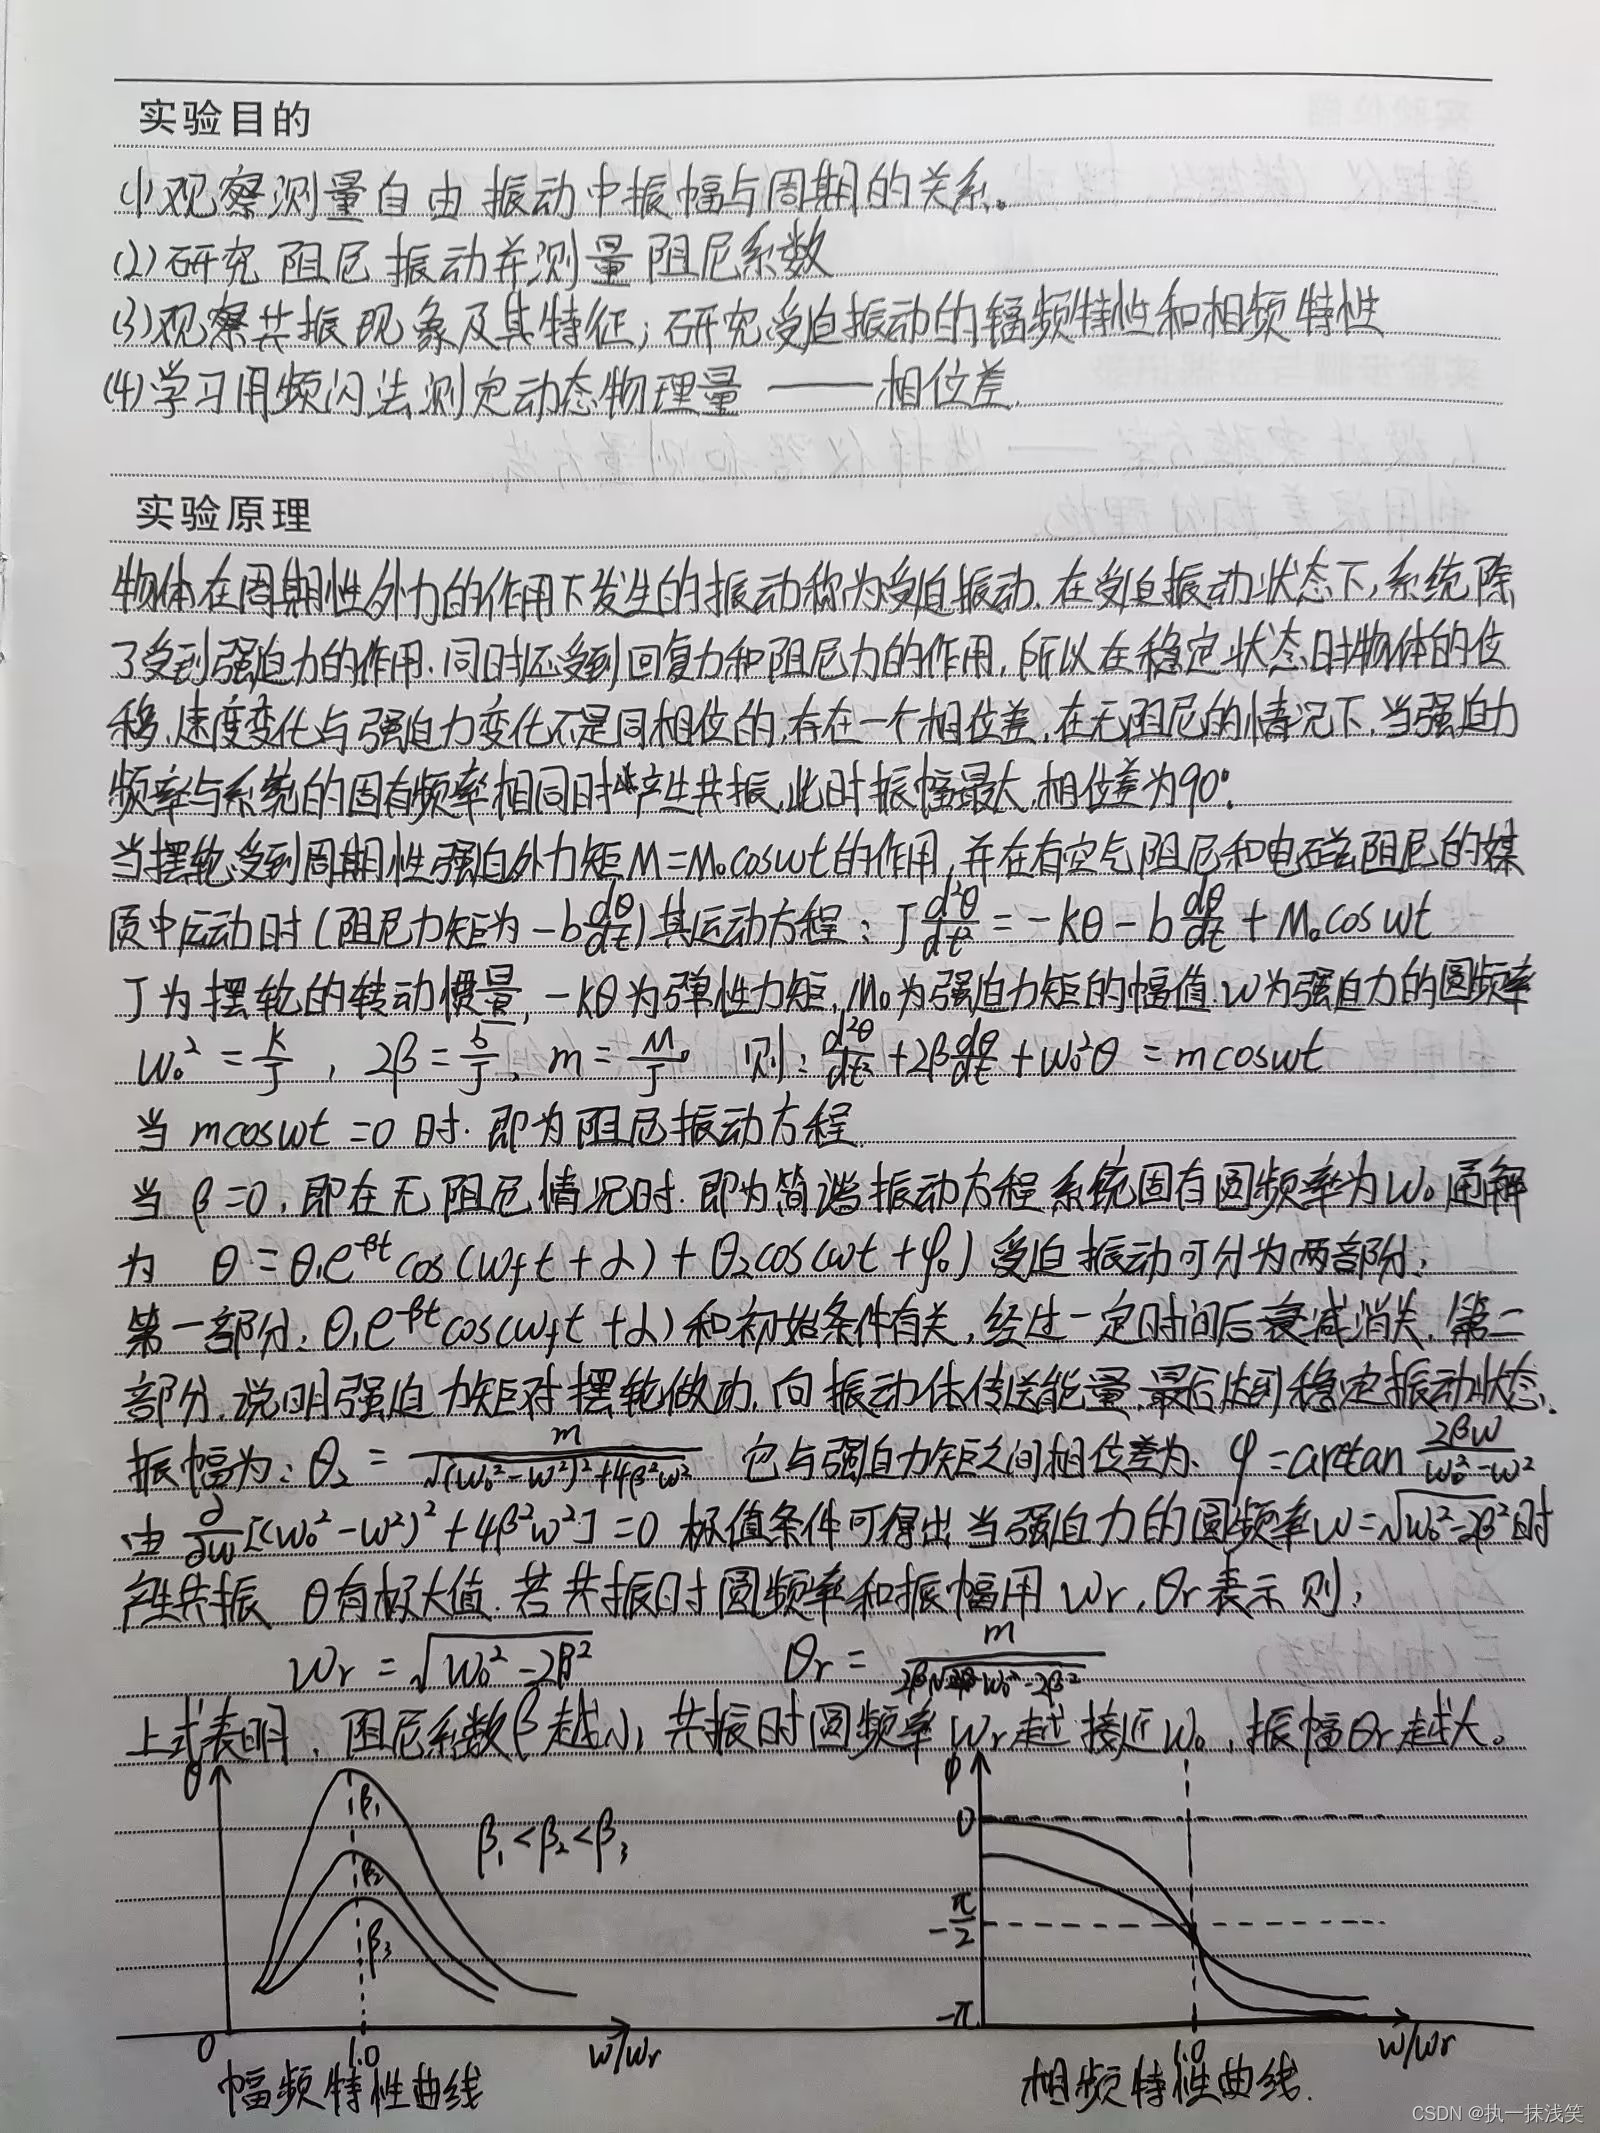 实验目的
(1)观察测量自由振动中振幅与周期的关系。
(2)研究阻尼振动并测量阻尼系数
(3)观察共振现象及其特征,研究受迫振动的辐频特性和相频特性
(4)学习用频闪法测定动态物理量——相位差.
实验原理
物体在周期性外力的作用下发生的振动称为受迫振动.在受迫振动状态下,系统除
了受到强迫力的作用.同时还受到回复力和阻尼力的作用,所以在稳定状态时物体的位
移、速度变化与强迫力变化不是同相位的,存在一个相位差.在无阻尼的情况下.当强迫力
频率与系统的固有频率相同时产生共振,此时振幅最大,相位差为90°.
当摆轮受到周期性强迫外力矩M=M₀coswt的作用,并在有空气阻尼和电磁阻尼的媒
质中运动时(阻尼力矩为-b dθ/dt)其运动方程:J d²θ/dt² = -kθ - b dθ/dt + M₀cos wt
J为摆轮的转动惯量,-kθ为弹性力矩,M₀为强迫力矩的幅值.w为强迫力的圆频率
w₀² = k/J , 2β = b/J , m = M₀/J 则: d²θ/dt² + 2β dθ/dt + w₀²θ = mcoswt
当 mcoswt =0 时.即为阻尼振动方程.
当 β=0,即在无阻尼情况时.即为简谐振动方程系统固有圆频率为w₀通解
为 θ = θ₁e^-βt cos(w_f t + α) + θ₂cos(wt + φ₀) 受迫振动可分为两部分:
第一部分:θ₁e^-βt cos(w_f t + α)和初始条件有关,经过一定时间后衰减消失.第二
部分.说明强迫力矩对摆轮做功,向振动体传送能量.最后达到稳定振动状态.
振幅为:θ₂ = m/√((w₀²-w²)²+4β²w²) 它与强迫力矩之间相位差为、φ=arctan 2βw/(w₀²-w²)
由 ∂/∂w[(w₀²-w²)²+4β²w²]=0 极值条件可得出当强迫力的圆频率w=√(w₀²-2β²)时
产生共振 θ有极大值.若共振时圆频率和振幅用 wr,θr表示则:
wr = √(w₀²-2β²) θr = m/(2β√(w₀²-2β²))
上式表明、阻尼系数β越小,共振时圆频率wr越接近w₀,振幅θr越大。
θ
β₁
β₂
β₃
β₁<β₂<β₃
0
1.0
w/wr
幅频特性曲线
φ
0
-π/2
-π
1.0
w/wr
相频特性曲线.
CSDN @执一抹浅笑